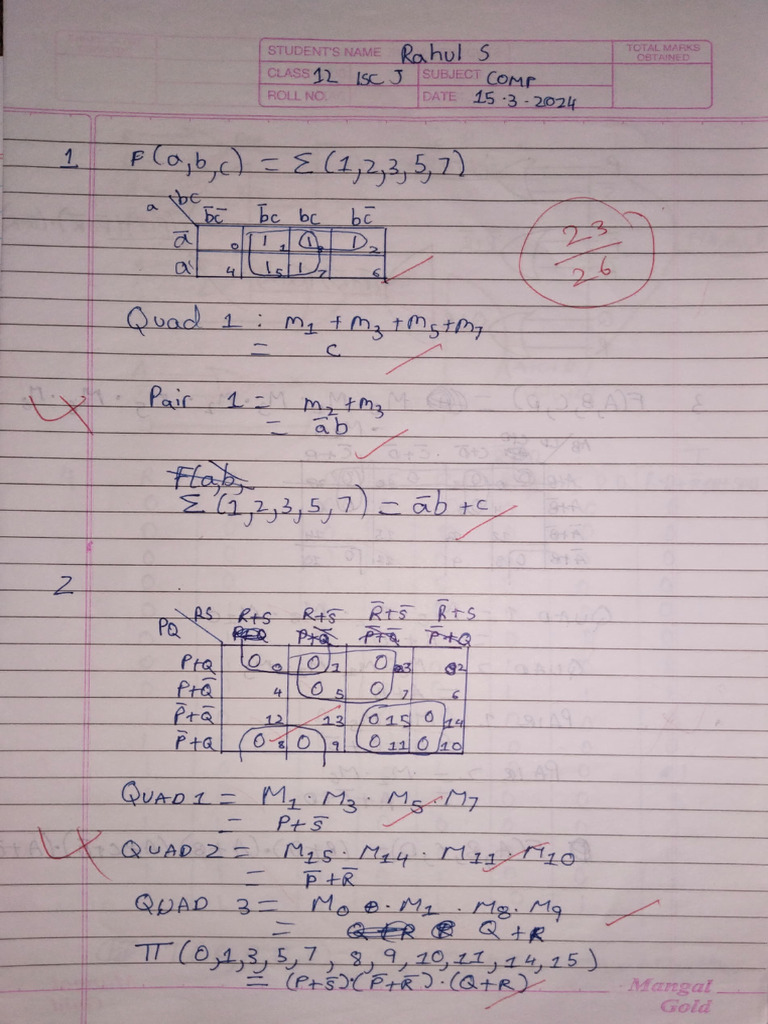 STUDENT'S NAME Rahul S
TOTAL MARKS OBTAINED
CLASS 12 ISC J SUBJECT COMP
ROLL NO. DATE 15.3.2024
1 F(a,b,c) = Σ(1,2,3,5,7)
23/26
a bc b̅c̅ b̅c bc bc̅
a̅ 0 1 1 1 3 1 2
a 4 1 5 1 7 6
Quad 1 : m₁ + m₃ + m₅ + m₇
= c
Pair 1 = m₂ + m₃
= a̅b
F(a,b,
Σ(1,2,3,5,7) = a̅b + c
2
PQ RS R+S R+S̅ R̅+S̅ R̅+S
P+Q P+Q̅ P̅+Q̅ P̅+Q
P+Q 0 0 0 1 0 3 2
P+Q̅ 4 0 5 0 7 6
P̅+Q̅ 12 13 0 15 0 14
P̅+Q 0 8 0 9 0 11 0 10
QUAD 1 = M₁ · M₃ · M₅ · M₇
= P+S̅
QUAD 2 = M₁₅ · M₁₄ · M₁₁ · M₁₀
= P̅+R̅
QUAD 3 = M₀ · M₁ · M₈ · M₉
= Q+R
π(0,1,3,5,7,8,9,10,11,14,15)
= (P+S̅)·(P̅+R̅)·(Q+R)
Mangal
Gold